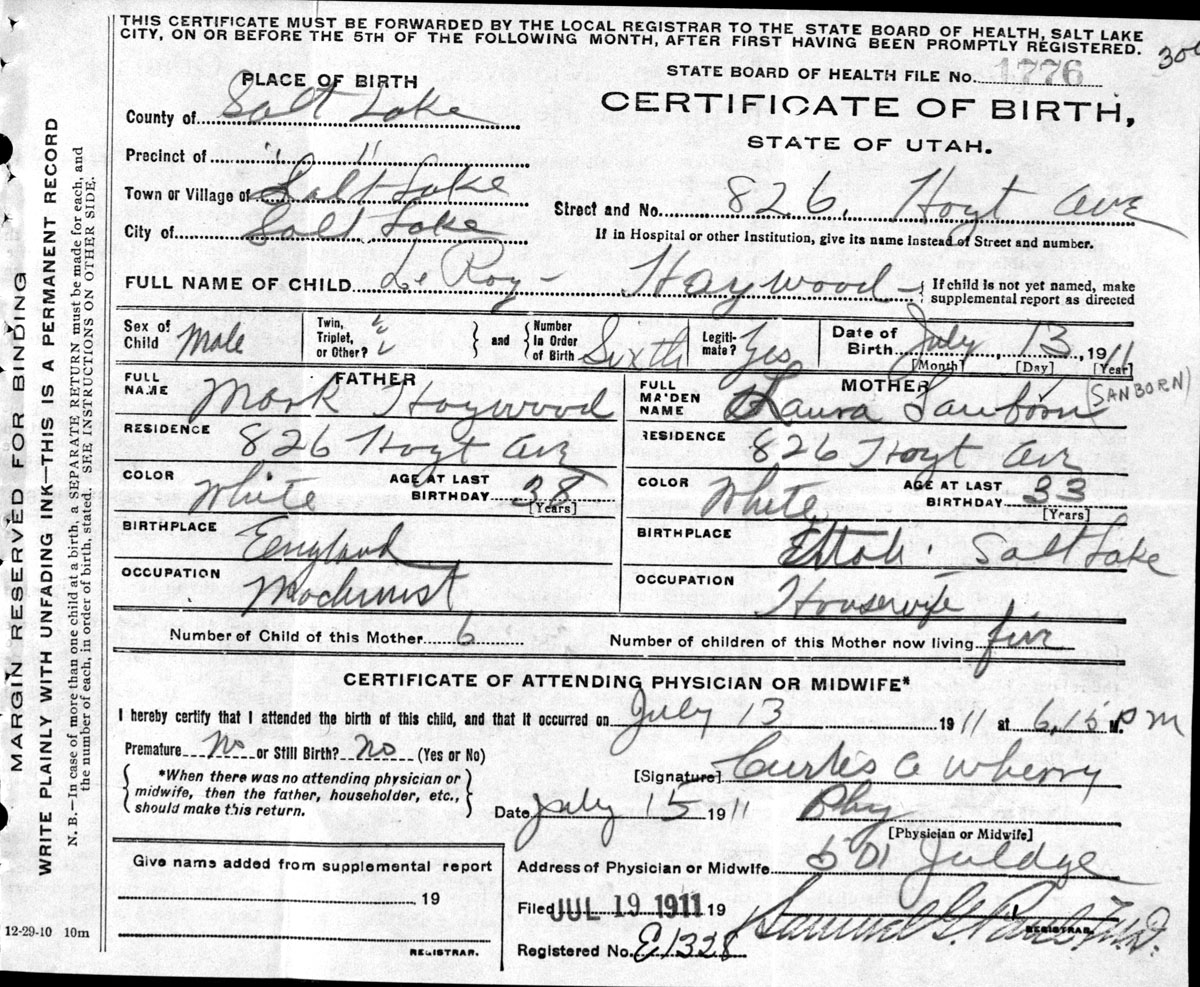 THIS CERTIFICATE MUST BE FORWARDED BY THE LOCAL REGISTRAR TO THE STATE BOARD OF HEALTH, SALT LAKE
CITY, ON OR BEFORE THE 5TH OF THE FOLLOWING MONTH, AFTER FIRST HAVING BEEN PROMPTLY REGISTERED.
STATE BOARD OF HEALTH FILE No. 1776
PLACE OF BIRTH
CERTIFICATE OF BIRTH,
STATE OF UTAH.
County of Salt Lake
Precinct of " "
Town or Village of Salt Lake
City of Salt Lake
Street and No. 826. Hoyt Ave
If in Hospital or other Institution, give its name instead of Street and number.
FULL NAME OF CHILD Le Roy - Haywood - { If child is not yet named, make
supplemental report as directed
Sex of Child Male
Twin, Triplet, or Other?
and Number in Order of Birth Sixth
Legitimate? Yes
Date of Birth July 13, 1911
[Month] [Day] [Year]
FATHER
FULL NAME Mark Haywood
RESIDENCE 826 Hoyt Ave
COLOR White AGE AT LAST BIRTHDAY 38
[Years]
BIRTHPLACE England
OCCUPATION Machinist
MOTHER
FULL MAIDEN NAME Laura Sanborn (SANBORN)
RESIDENCE 826 Hoyt Ave
COLOR White AGE AT LAST BIRTHDAY 33
[Years]
BIRTHPLACE Utah. Salt Lake
OCCUPATION Housewife
Number of Child of this Mother 6 Number of children of this Mother now living five
CERTIFICATE OF ATTENDING PHYSICIAN OR MIDWIFE*
I hereby certify that I attended the birth of this child, and that it occurred on July 13 1911 at 6,15 P M
Premature No or Still Birth? No (Yes or No)
*When there was no attending physician or
midwife, then the father, householder, etc.,
should make this return.
[Signature] Curtis A Wherry
Date July 15 1911 Phy
[Physician or Midwife]
Address of Physician or Midwife 501 Juldge
Give name added from supplemental report
19
REGISTRAR.
Filed JUL 19 1911 19
REGISTRAR.
Registered No. E1328
12-29-10 10m
MARGIN RESERVED FOR BINDING
WRITE PLAINLY WITH UNFADING INK—THIS IS A PERMANENT RECORD
N. B.—In case of more than one child at a birth, a SEPARATE RETURN must be made for each, and
the number of each, in order of birth, stated. SEE INSTRUCTIONS ON OTHER SIDE.